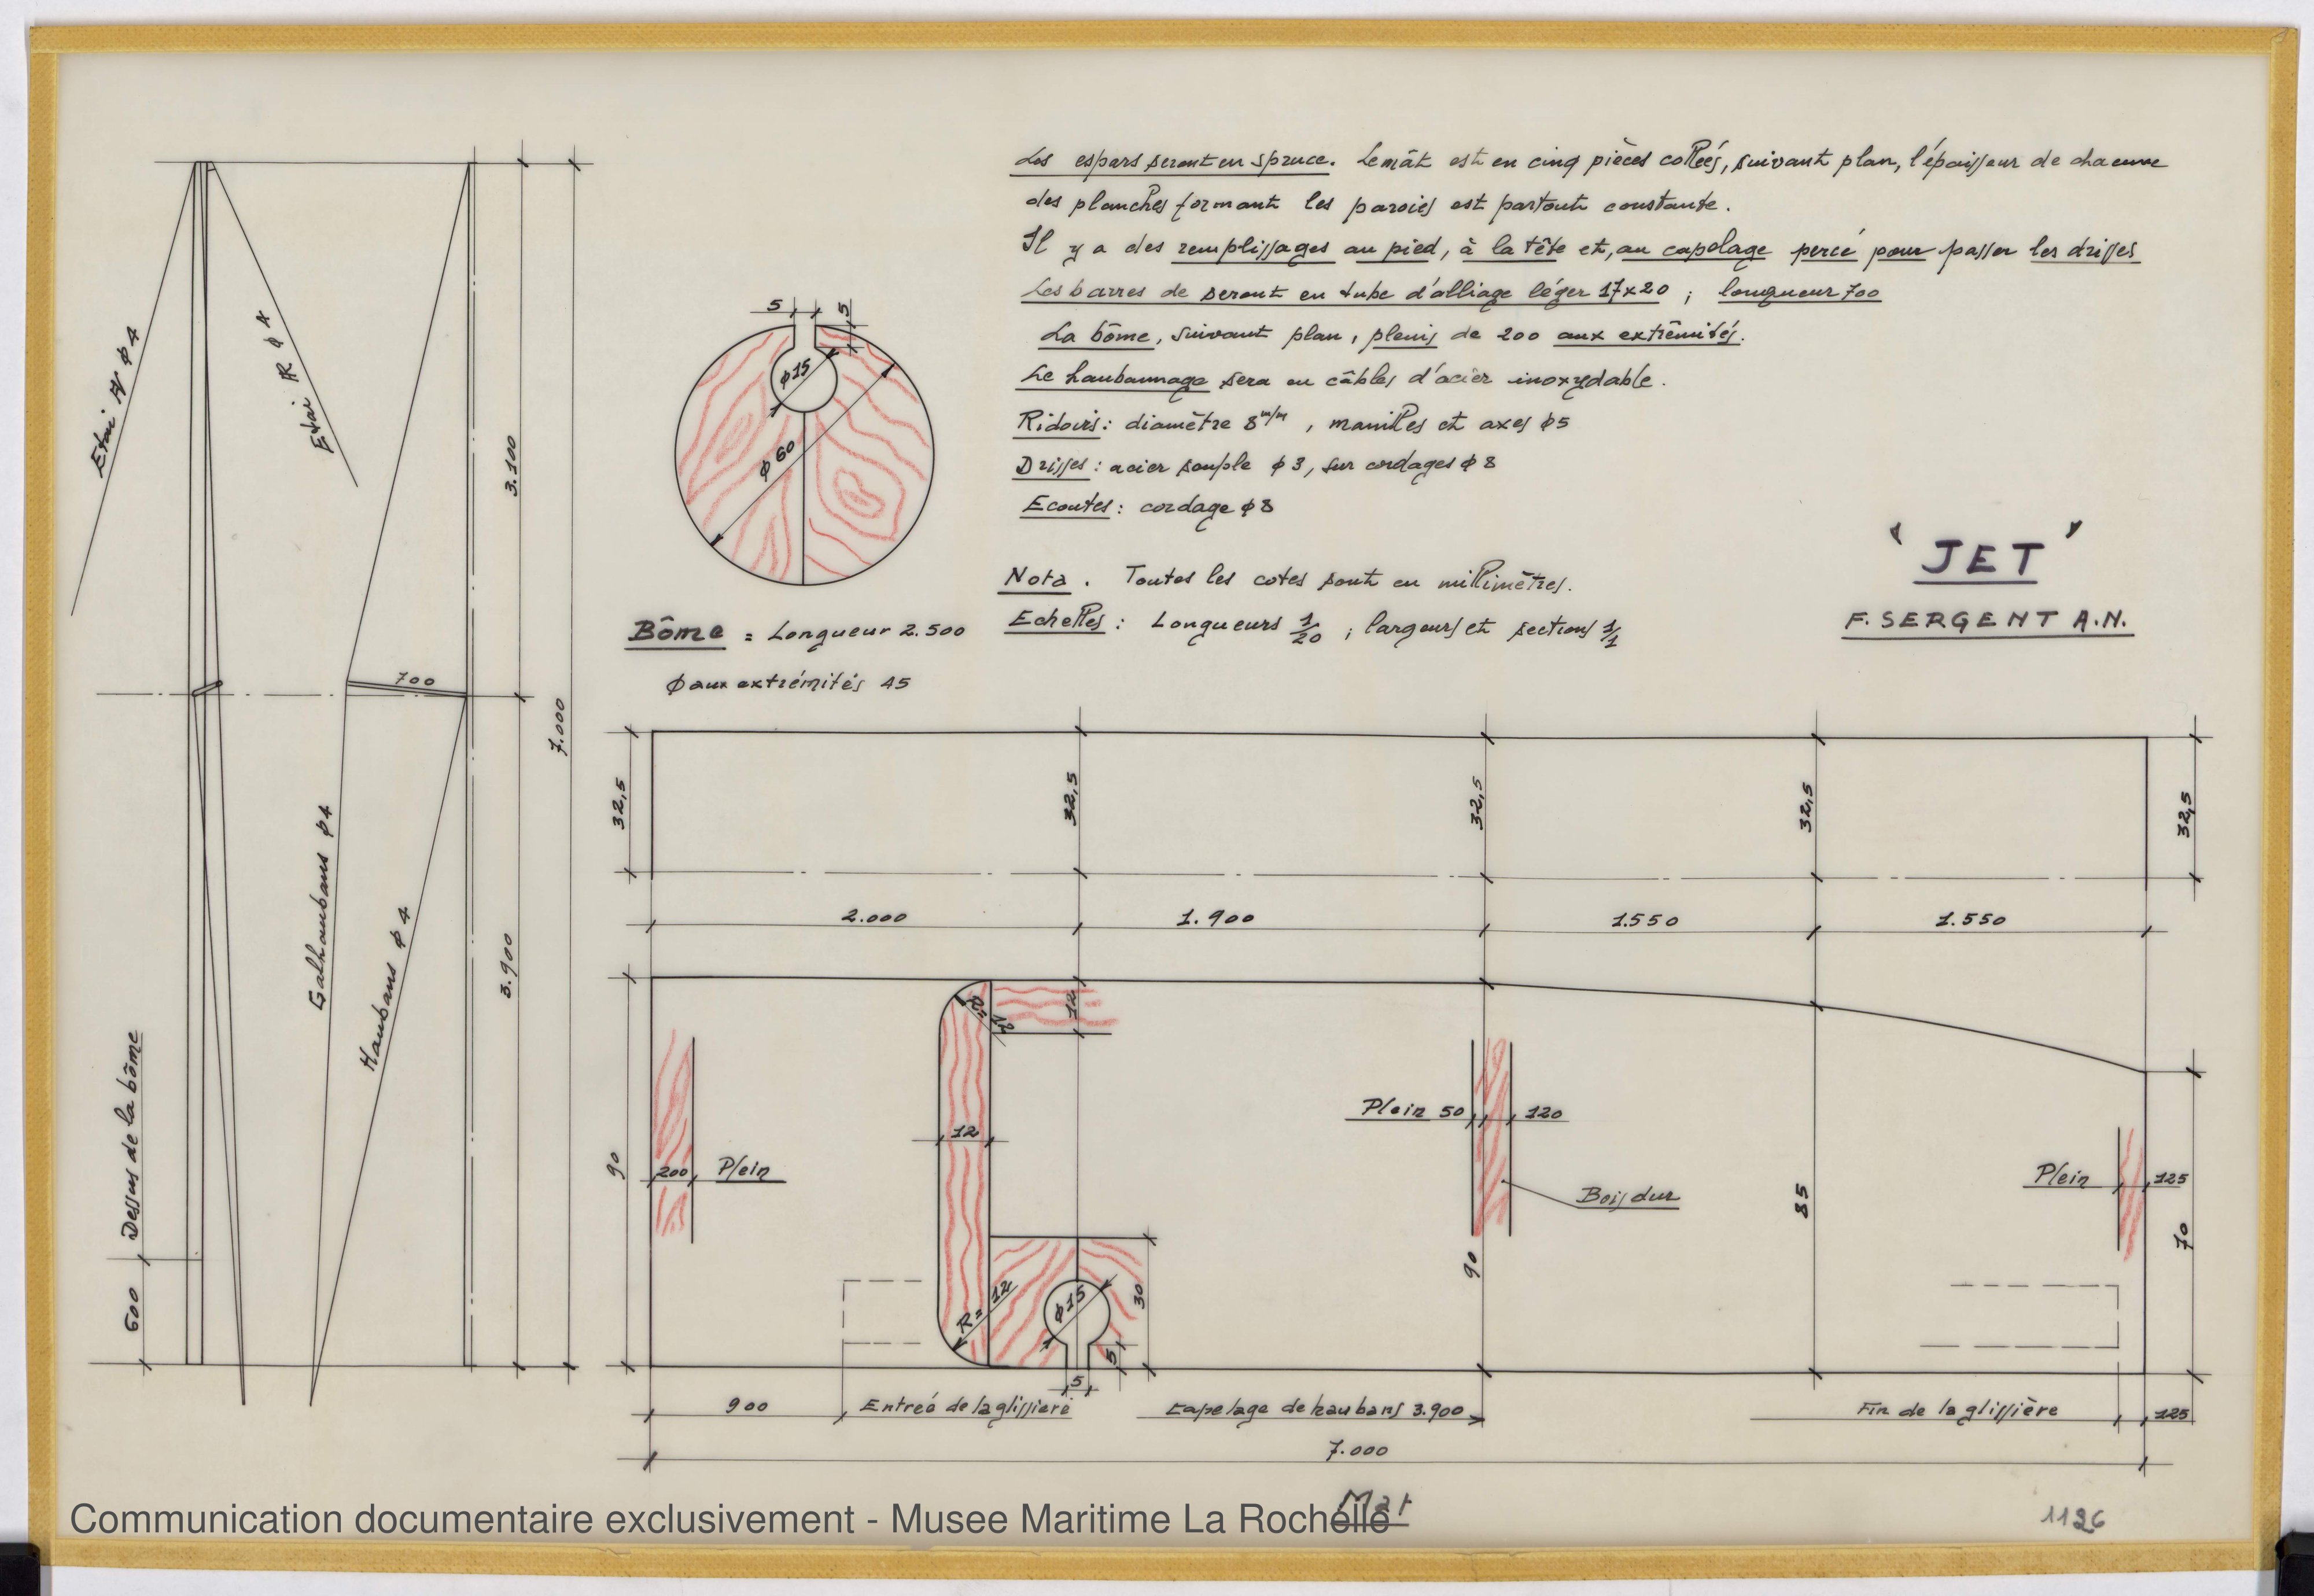 Les espars seront en spruce. Le mât est en cinq pièces collées, suivant plan, l'épaisseur de chacune
des planches formant les parois est partout constante.
Il y a des remplissages au pied, à la tête et, au capelage percé pour passer les drisses
Les barres de seront en tube d'alliage léger 17x20 ; longueur 700
La bôme, suivant plan, pleins de 200 aux extrêmités.
Le haubannage sera en câbles d'acier inoxydable.
Ridoirs : diamètre 8 m/m, manilles et axes φ5
Drisses : acier souple φ 3, sur cordages φ 8
Ecoutes : cordage φ 8
Nota . Toutes les cotes sont en millimètres.
Echelles : Longueurs 1/20 ; largeurs et sections 1/1
"JET"
F. SERGENT A.N.
Etai AV φ 4
Etai AR φ 4
3.100
7.000
700
Galhaubans φ4
Haubans φ 4
3.900
Dessus de la bôme
600
5
5
φ15
φ 60
Bôme = Longueur 2.500
φ aux extrémités 45
32,5
32,5
32,5
32,5
32,5
2.000
1.900
1.550
1.550
90
200
Plein
R=12
12
12
R=12
φ15
30
5
5
Plein 50
120
Bois dur
90
85
Plein
125
70
900
Entreé de la glissière
Capelage de haubans 3.900
Fin de la glissière
125
7.000
Mat
1126
Communication documentaire exclusivement - Musee Maritime La Rochelle